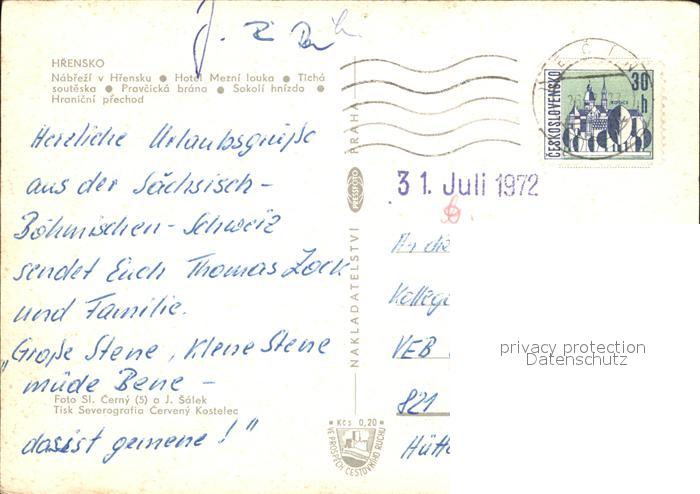 HŘENSKO
Nábřeží v Hřensku ● Hotel Mezní louka ● Tichá
soutěska ● Pravčická brána ● Sokolí hnízdo ●
Hraniční přechod
Herzliche Urlaubsgrüße
aus der Sächsisch-
Böhmischen-Schweiz
sendet Euch Thomas Zock
und Familie.
„Große Stene, Klene Stene
müde Bene –
dasist gemene!"
Foto Sl. Černý (5) a J. Šálek
Tisk Severografia Červený Kostelec
NAKLADATELSTVÍ PRESSFOTO PRAHA
Kčs 0,20
VE PROSPĚCH CESTOVNÍHO RUCHU
ČESKOSLOVENSKO
30 h
KOŠICE
31. Juli 1972
An die
Kolleg
VEB
821
Hütte
privacy protection
Datenschutz